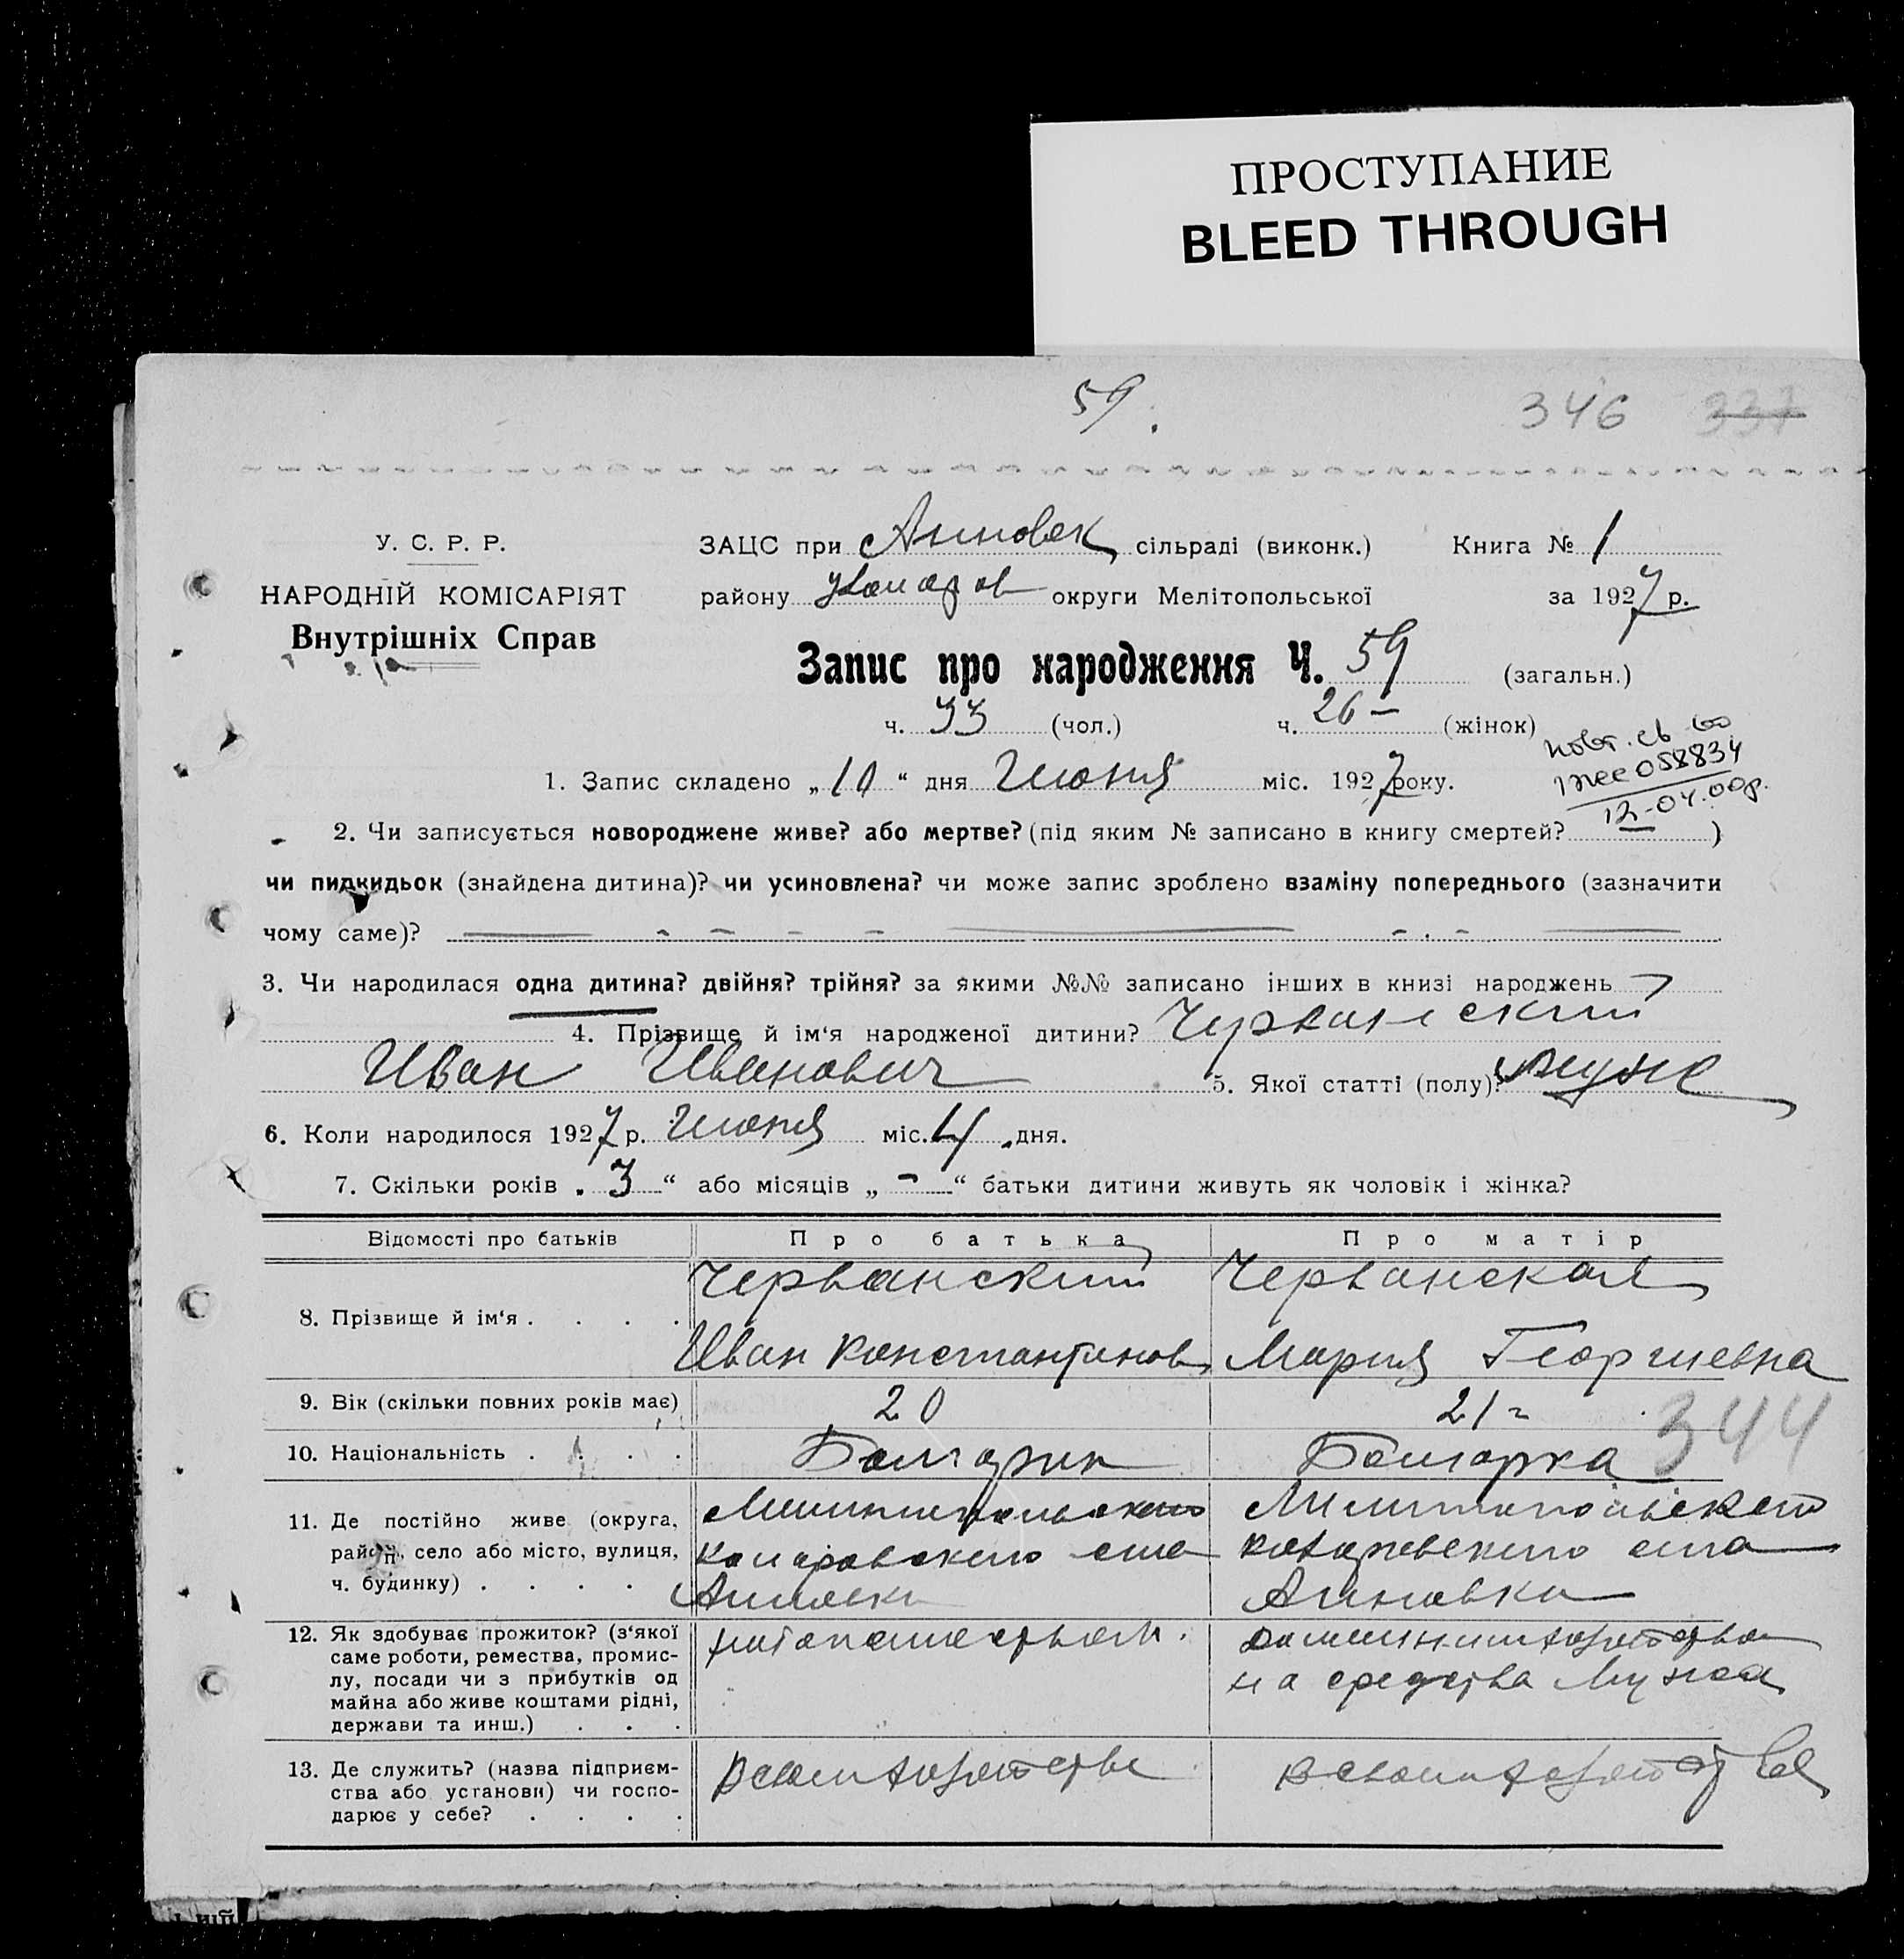 ПРОСТУПАНИЕ
BLEED THROUGH
59.
346 337
У. С. Р. Р.
НАРОДНІЙ КОМІСАРІЯТ
Внутрішніх Справ
ЗАЦС при Анновск сільраді (виконк.) Книга № 1
району округи Мелітопольської за 1927 р.
Запис про народження Ч. 59 (загальн.)
ч. 33 (чол.) ч. 26 – (жінок)
058834
12-04.00р.
1. Запис складено „10“ дня Июня міс. 1927 року.
2. Чи записується новороджене живе? або мертве? (під яким № записано в книгу смертей? — )
чи пидкидьок (знайдена дитина)? чи усиновлена? чи може запис зроблено взаміну попереднього (зазначити
чому саме)?
3. Чи народилася одна дитина? двійня? трійня? за якими №№ записано інших в книзі народжень
4. Прізвище й ім‘я народженої дитини? Червански‌й
Иван Иванович 5. Якої статті (полу)? муж
6. Коли народилося 1927 р. Июня міс. 4 дня.
7. Скільки років „3“ або місяців „-“ батьки дитини живуть як чоловік і жінка?
Відомості про батьків Про батька Про матір
8. Прізвище й ім‘я . . . .
Черванский Черванская
Иван Константинов Мария Георгиевна
9. Вік (скільки повних років має) 20 21
344
10. Національність . . . . Болгарин Болгарка
11. Де постійно живе (округа, район, село або місто, вулиця, ч. будинку) . . . .
Мелитопольского Мелитопольского
Анновка Анновка
12. Як здобуває прожиток? (з‘якої
саме роботи, ремества, промис-
лу, посади чи з прибутків од
майна або живе коштами рідні,
держави та инш.) . . .
на средства Мужа
13. Де служить? (назва підприєм-
ства або установи) чи госпо-
дарює у себе? . . . .